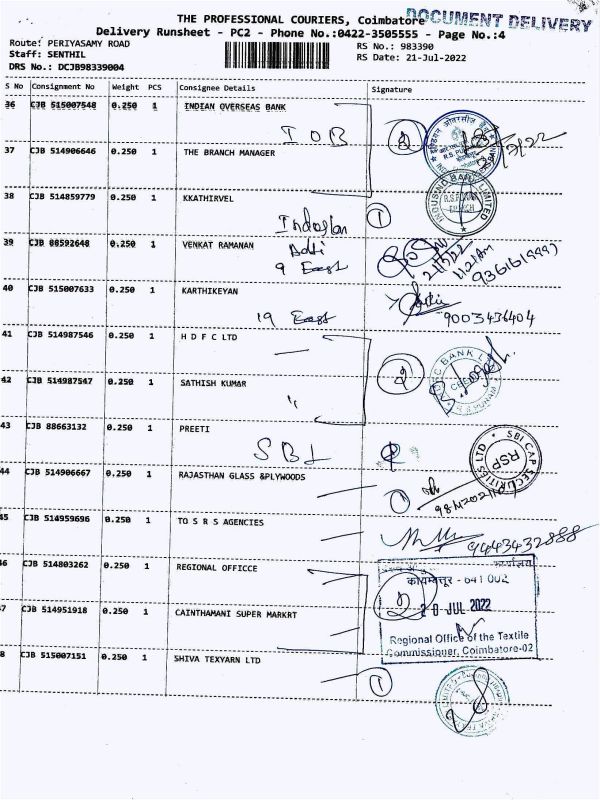 THE PROFESSIONAL COURIERS, Coimbatore
DOCUMENT DELIVERY
Delivery Runsheet - PC2 - Phone No.:0422-3505555 - Page No.:4
Route: PERIYASAMY ROAD
Staff: SENTHIL
DRS No.: DCJB98339004
RS No.: 983390
RS Date: 21-Jul-2022
S No Consignment No Weight PCS Consignee Details Signature
36 CJB 515007548 0.250 1 INDIAN OVERSEAS BANK
IOB 2
37 CJB 514906646 0.250 1 THE BRANCH MANAGER
38 CJB 514859779 0.250 1 KKATHIRVEL
1
INDUSIND BANK LIMITED
39 CJB 88592648 0.250 1 VENKAT RAMANAN
9 East
21/7/22
11:21 AM
40 CJB 515007633 0.250 1 KARTHIKEYAN
19 East
9003436404
41 CJB 514987546 0.250 1 H D F C LTD
2
42 CJB 514987547 0.250 1 SATHISH KUMAR
"
43 CJB 88663132 0.250 1 PREETI
SBI
SBI CAP SECURITIES LTD
RSP
44 CJB 514906667 0.250 1 RAJASTHAN GLASS &PLYWOODS
1
45 CJB 514959696 0.250 1 TO S R S AGENCIES
9443432888
46 CJB 514803262 0.250 1 REGIONAL OFFICCE
कोयम्बत्तूर - 641 002
2
20 JUL 2022
47 CJB 514951918 0.250 1 CAINTHAMANI SUPER MARKRT
Regional Office of the Textile
Commissioner, Coimbatore-02
48 CJB 515007151 0.250 1 SHIVA TEXYARN LTD
1